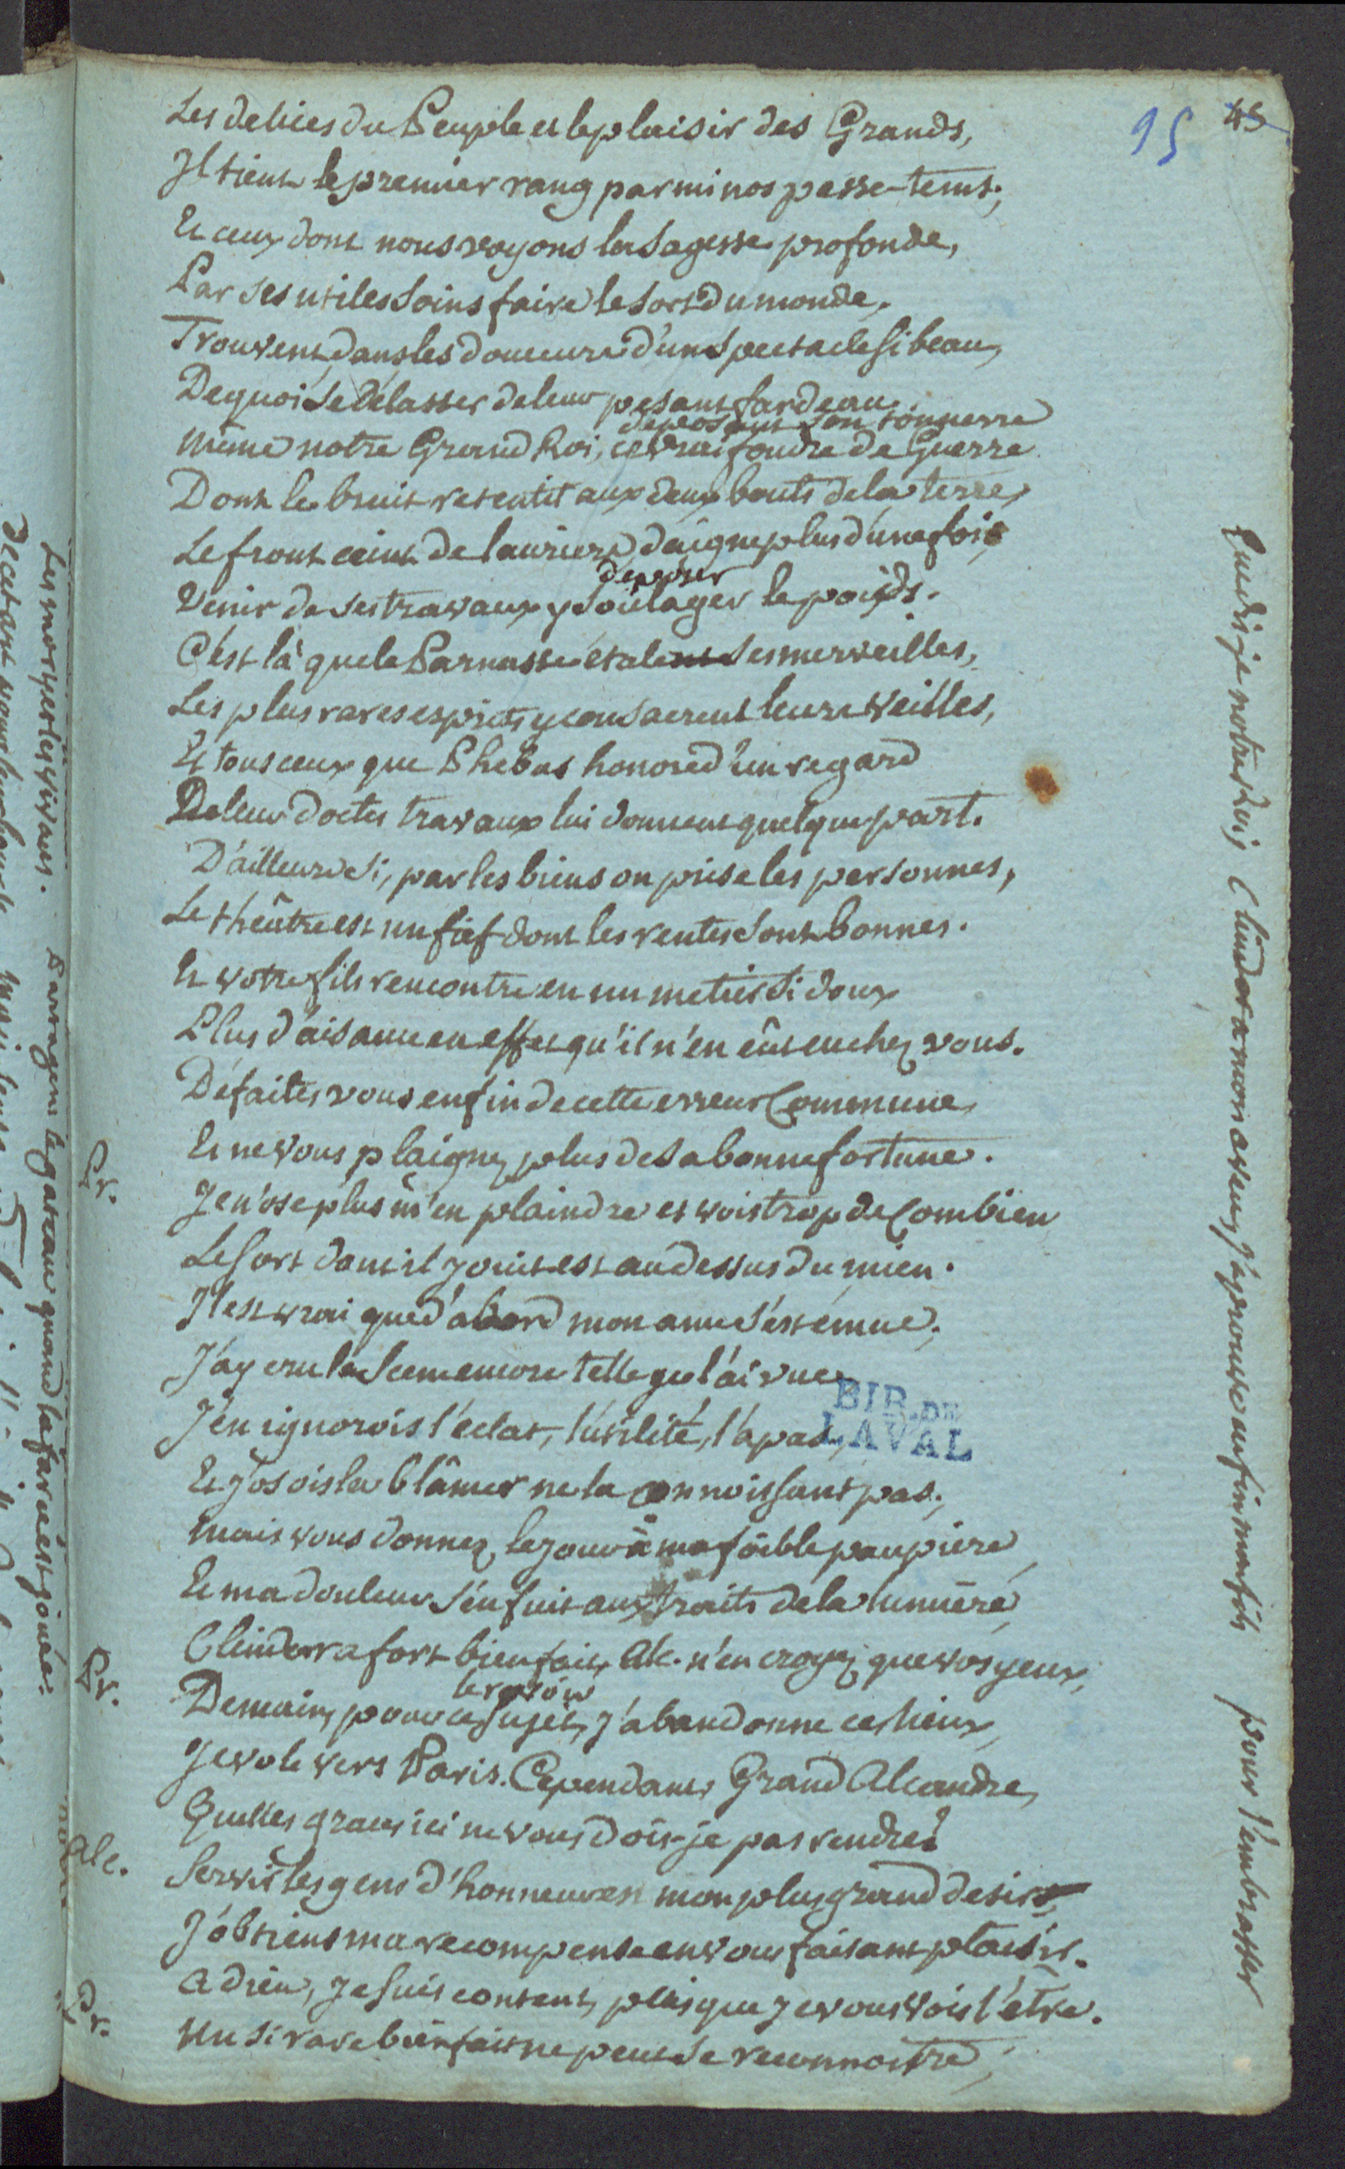 95 45
Les delices du Peuple et le plaisir des Grands,
Il tient le premier rang parmi nos passe-tems;
Et ceux dont nous voyons la Sagesse profonde,
Par ses utiles Soins faire le Sort du monde,
Trouvent, dans les douceurs d'un Spectacle Si beau,
De quoi Se délasser de leur pesant fardeau.
déposant Son tonnerre
Même notre Grand Roi, ce vrai foudre de Guerre
Dont le bruit retentit aux deux bouts de la terre,
Le front ceint de lauriers, daigne plus d'une fois
deposer
Venir de Ses travaux y Soulager le poids.
C'est là que le Parnasse étale Ses merveilles,
Les plus rares esprits y consacrent leurs veilles,
Et tous ceux que Phébus honore d'un regard
De leurs doctes travaux lui donnent quelque part.
D'ailleurs Si, par les biens on prise les personnes,
Le théâtre est un fief dont les rentes Sont bonnes.
Et votre fils rencontre en un metier Si doux
Plus d'aisance en effet qu'il n'en eût eu chez vous.
Défaites vous enfin de cette erreur Commune,
Et ne vous plaignez plus de Sa bonne fortune.
Pr. Je n'ose plus m'en plaindre et vois trop de Combien
Le Sort dont il jouit est au dessus du mien.
Il est vrai que d'abord mon ame S'est émue,
J'ay cru la Scene encore telle que l'ai vue,
J'en ignorois l'eclat, l'utilité, l'apas,
Et j'osois la blâmer ne la connoissant pas;
Mais vous donnez le jour à ma foible paupiere,
Et ma douleur S'enfuit aux traits de la lumiere,
Clindor a fort bien fait, Alc. n'en croyez que vos yeux,
le revoir
Pr. Demain, pour ce Sujet, j'abandonne ces lieux,
Je vole vers Paris. Cependant, Grand Alcandre,
Quelles graces ici ne vous dois-je pas rendre?
Alc. Servir les gens d'honneur est mon plus grand desir,
J'obtiens ma recompense en vous faisant plaisir.
Adieu, Je Suis content, puisque je vous vois l'être.
Pr. Un Si rare bienfait ne peut Se reconnoitre,
Clindor à mon aveu, j'aprouve enfin mon fils pour l'embrasser
Les morts et les vivans. Partagent le gateau quand la farce est jouée.
BIB. DE
LAVAL